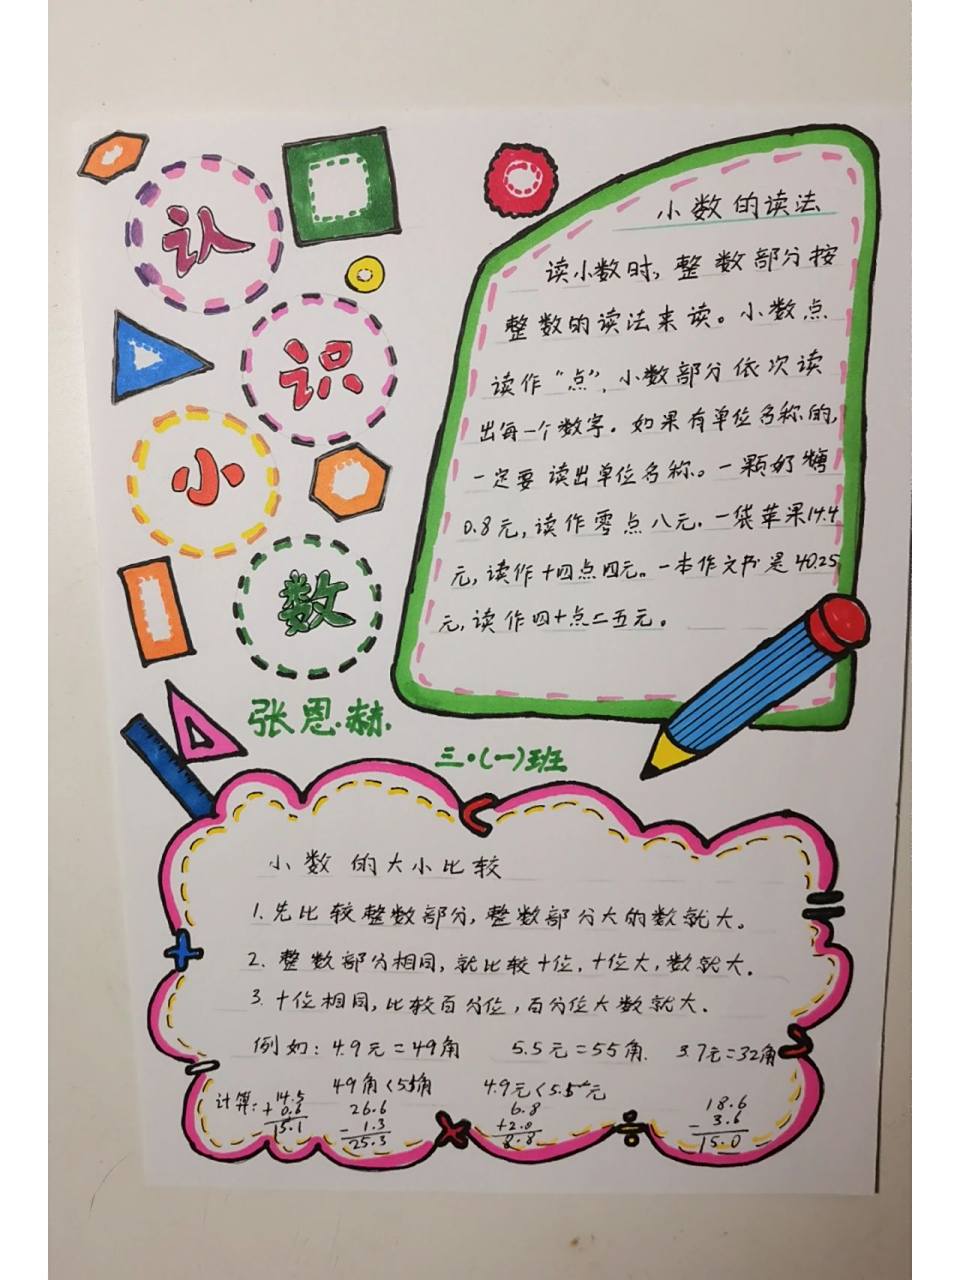 认
识
小
数
张恩赫
三·(一)班
小数的读法
读小数时,整数部分按
整数的读法来读。小数点
读作“点”,小数部分依次读
出每一个数字。如果有单位名称的,
一定要读出单位名称。一颗奶糖
0.8元,读作零点八元。一袋苹果14.4
元,读作十四点四元。一本作文书是40.25
元,读作四十点二五元。
小数的大小比较
1.先比较整数部分,整数部分大的数就大。
2.整数部分相同,就比较十位,十位大,数就大。
3.十位相同,比较百分位,百分位大数就大。
例如:4.9元=49角 5.5元=55角. 3.7元=32角
49角<55角 4.9元<5.5元
计算: 14.5 26.6 6.8 18.6
+0.6 -1.3 +2.0 -3.6
15.1 25.3 8.8 15.0